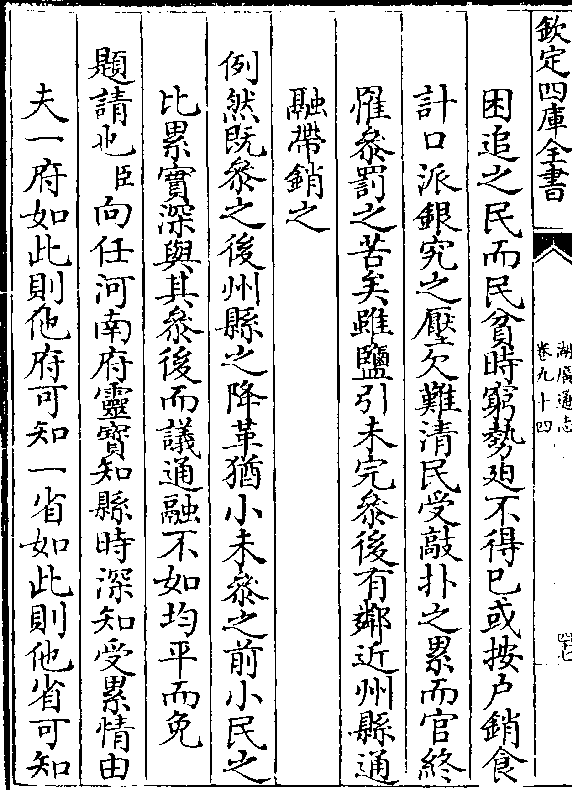 欽定四庫全書
湖廣通志
卷九十四
困追之民而民貧時窮勢廹不得已或按户銷食
計口派銀究之壓欠難清民受敲扑之累而官終
罹叅罰之苦矣雖鹽引未完叅後有鄰近州縣通
融帶銷之
例然既叅之後州縣之降革猶小未叅之前小民之
比累實深與其叅後而議通融不如均平而免
題請也臣向任河南府靈寳知縣時深知受累情由
夫一府如此則他府可知一省如此則他省可知